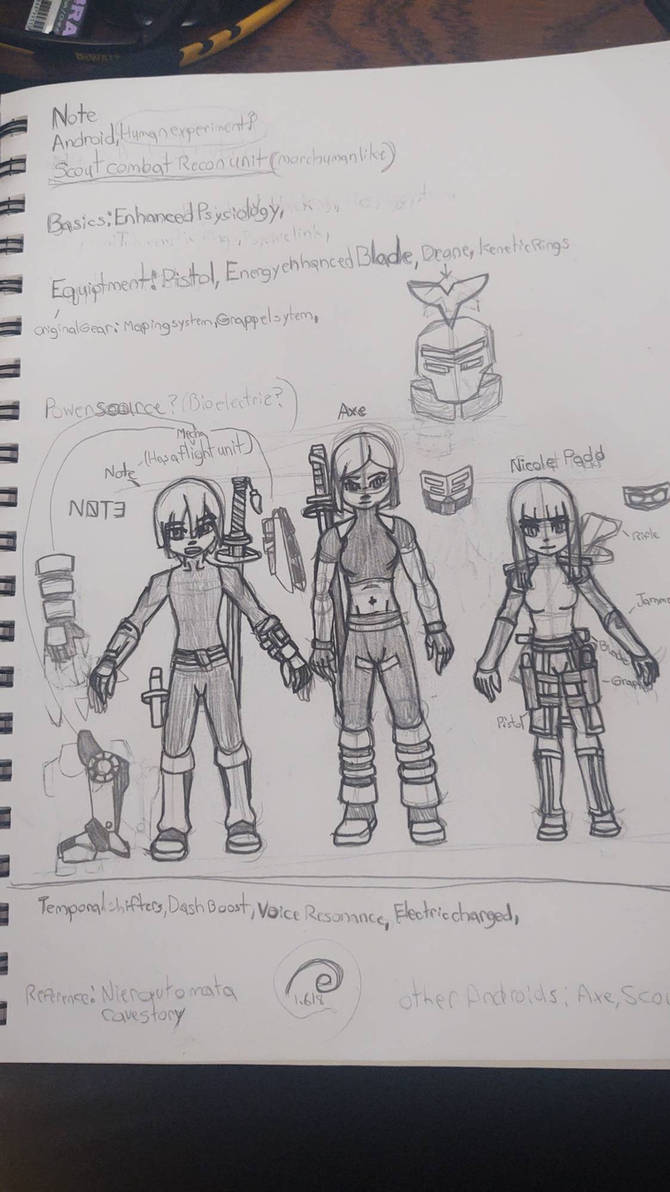 Note
Android, Human experiment?
Scout combat Recon unit (more human like)
Basics: Enhanced Psysiology,
link,
Equiptment: Pistol, Energy ehhanced Blade, Drone, Kenetic Rings
original Gear: Maping system, Grappel sytem,
Power source? (Bioelectric?)
Axe
Mecha
Note - (Has a flight unit)
NØTƎ
Nicole Padd
Rifle
Blade
Pistol
Temporal shifters, Dash Boost, Voice Resonance, Electric charged,
Reference: Nierautomata
cavestory
1.618
other Androids: Axe, Scou
DEWALT